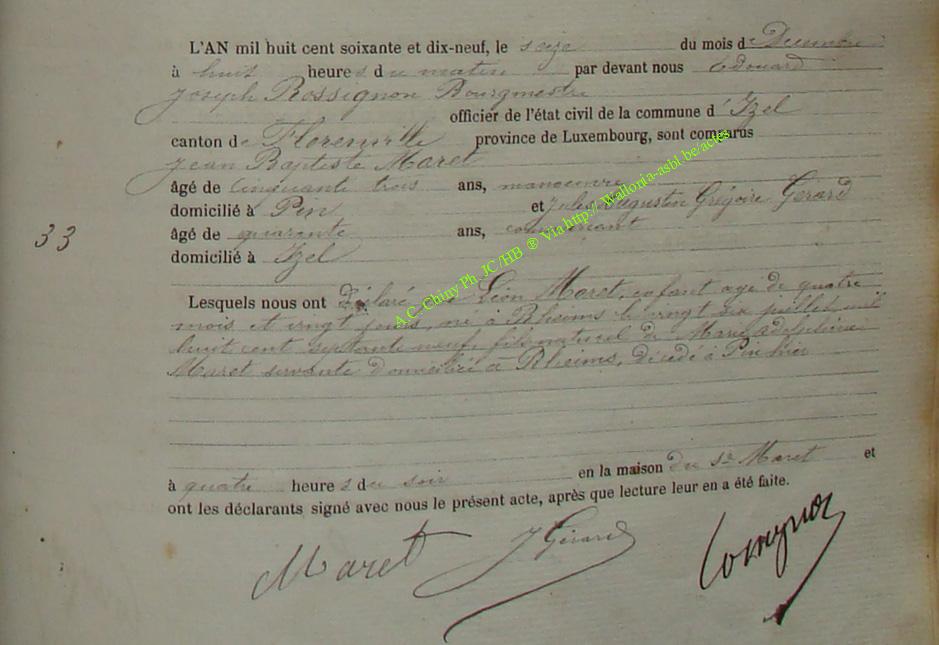 L'AN mil huit cent soixante et dix-neuf, le seize du mois de Decembre
à huit heures du matin par devant nous Edouard
Joseph Rossignon Bourgmestre
officier de l'état civil de la commune d'Izel
canton de Florenville province de Luxembourg, sont comparus
Jean Baptiste Maret
âgé de cinquante trois ans, manoeuvre
domicilié à Pin et Jules Augustin Grégoire Gerard
33
âgé de quarante ans, commerçant
domicilié à Izel
Lesquels nous ont déclaré que Léon Maret, enfant agé de quatre
mois et vingt jours, né à Rheims le vingt six juillet mil
huit cent septante neuf, fils naturel de Marie
Maret servante domiciliée à Rheims, décédé à Pin hier
à quatre heures du soir en la maison du Sr Maret et
ont les déclarants signé avec nous le présent acte, après que lecture leur en a été faite.
Maret J Gérard Rossignon
A.C. Chiny Ph. JC/HB ® Via http:/ Wallonia-asbl.be/actes